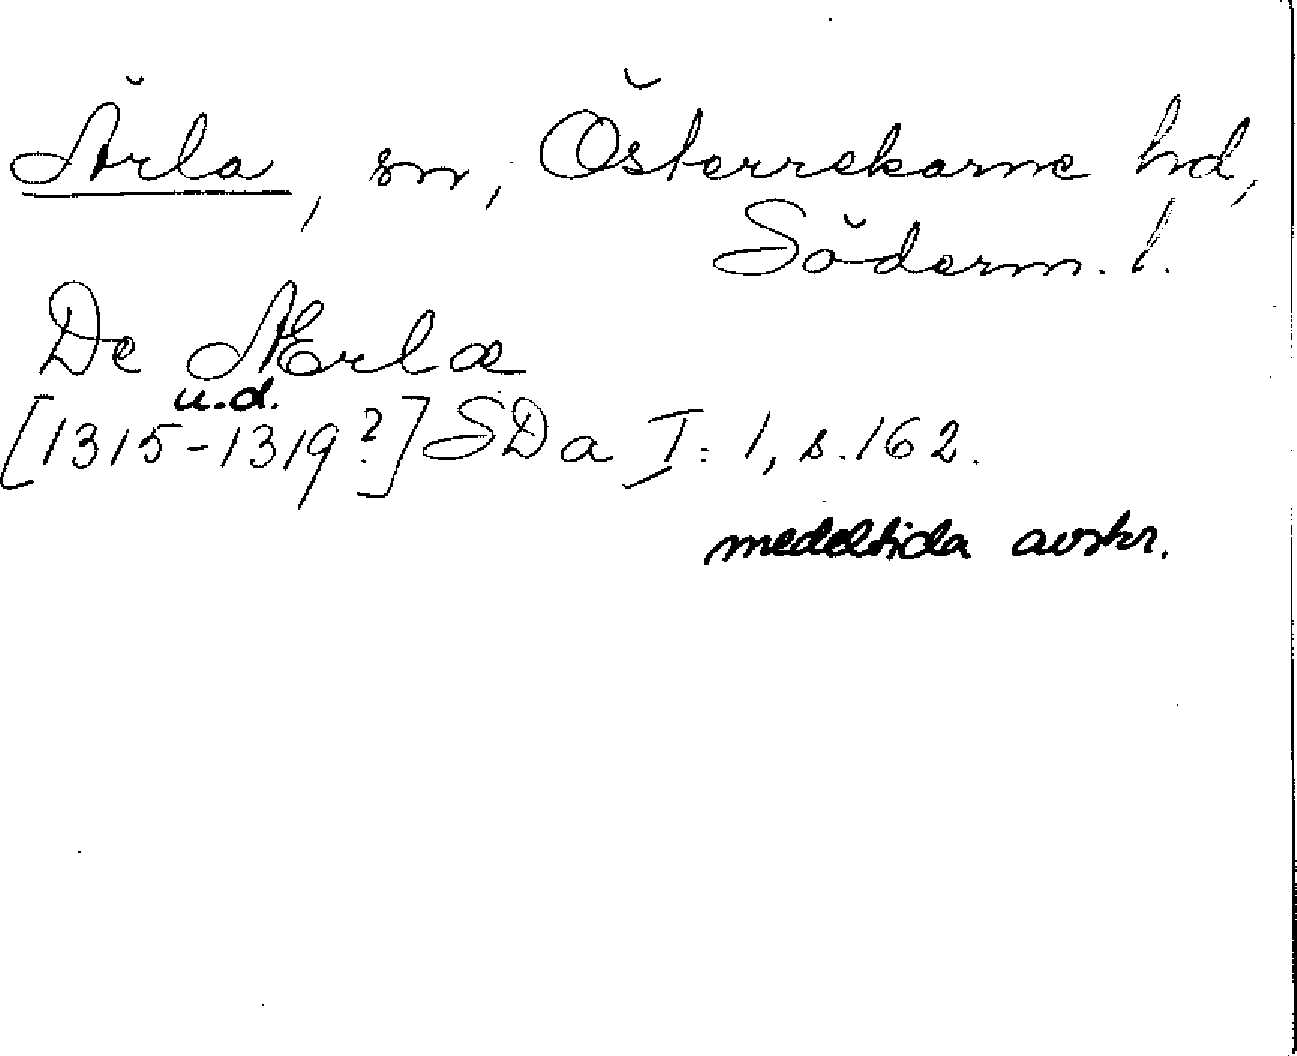 Ärla, sn, Österrekarne hd,
Söderm. l.
De Ærlæ
u.d.
[1315-1319?] SDa I:1, s. 162.
medeltida avskr.